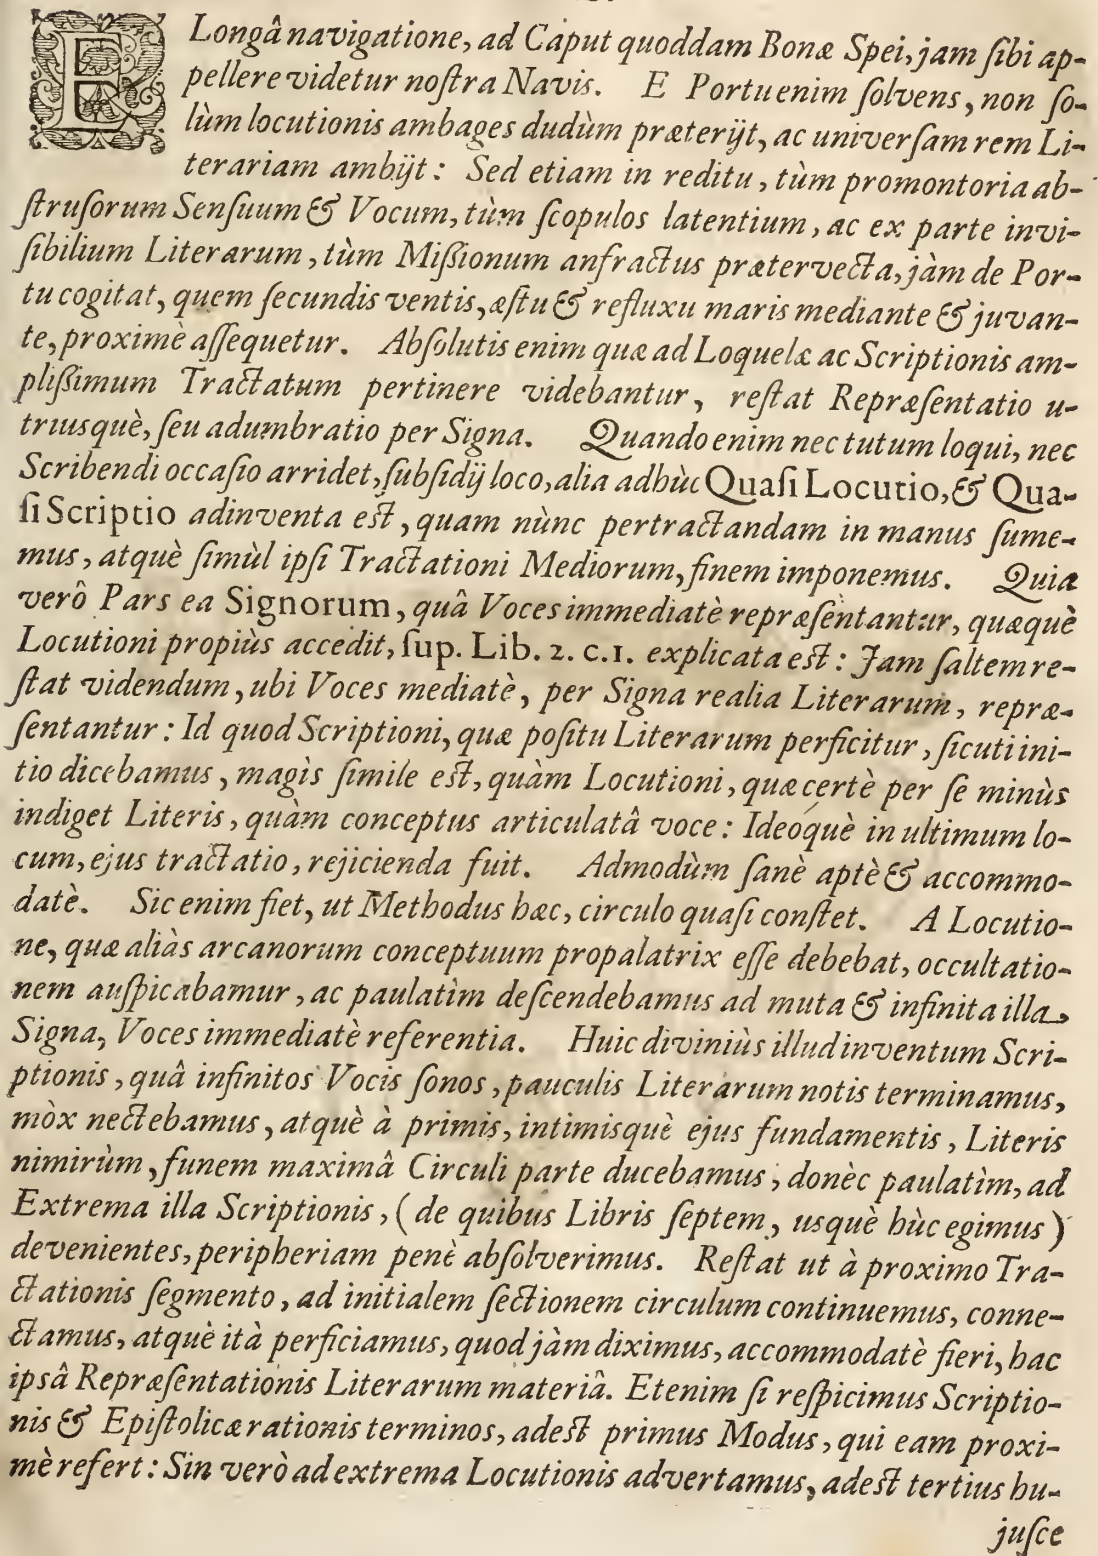 E Longâ navigatione, ad Caput quoddam Bonæ Spei, jam ſibi ap-
pellere videtur noſtra Navis. E Portu enim ſolvens, non ſo-
lùm locutionis ambages dudùm præterijt, ac univerſam rem Li-
terariam ambijt: Sed etiam in reditu, tùm promontoria ab-
ſtruſorum Senſuum & Vocum, tùm ſcopulos latentium, ac ex parte invi-
ſibilium Literarum, tùm Miſſionum anfractus prætervecta, jàm de Por-
tu cogitat, quem ſecundis ventis, æſtu & refluxu maris mediante & juvan-
te, proximè aſſequetur. Abſolutis enim quæ ad Loquelæ ac Scriptionis am-
pliſſimum Tractatum pertinere videbantur, reſtat Repræſentatio u-
triusquè, ſeu adumbratio per Signa. Quando enim nec tutum loqui, nec
Scribendi occaſio arridet, ſubſidij loco, alia adhùc Quaſi Locutio, & Qua-
ſi Scriptio adinventa eſt, quam nùnc pertractandam in manus ſume-
mus, atquè ſimùl ipſi Tractationi Mediorum, finem imponemus. Quia
verô Pars ea Signorum, quâ Voces immediatè repræſentantur, quæquè
Locutioni propiùs accedit, ſup. Lib. 2. c. 1. explicata eſt: Jam ſaltem re-
ſtat videndum, ubi Voces mediatè, per Signa realia Literarum, repræ-
ſentantur: Id quod Scriptioni, quæ poſitu Literarum perficitur, ſicuti ini-
tio dicebamus, magìs ſimile eſt, quàm Locutioni, quæ certè per ſe minùs
indiget Literis, quàm conceptus articulatâ voce: Ideóquè in ultimum lo-
cum, ejus tractatio, rejicienda fuit. Admodùm ſanè aptè & accommo-
datè. Sic enim fiet, ut Methodus hæc, circulo quaſi conſtet. A Locutio-
ne, quæ aliàs arcanorum conceptuum propalatrix eſſe debebat, occultatio-
nem auſpicabamur, ac paulatìm deſcendebamus ad muta & infinita illa
Signa, Voces immediatè referentia. Huic diviniùs illud inventum Scri-
ptionis, quâ infinitos Vocis ſonos, pauculis Literarum notis terminamus,
mòx nectebamus, atquè à primis, intimisquè ejus fundamentis, Literis
nimirùm, funem maximâ Circuli parte ducebamus, donèc paulatìm, ad
Extrema illa Scriptionis, (de quibus Libris ſeptem, usquè hùc egimus)
devenientes, peripheriam penè abſolverimus. Reſtat ut à proximo Tra-
ctationis ſegmento, ad initialem ſectionem circulum continuemus, conne-
ctamus, atquè ità perficiamus, quod jàm diximus, accommodatè fieri, hac
ipsâ Repræſentationis Literarum materiâ. Etenim ſi reſpicimus Scriptio-
nis & Epiſtolicæ rationis terminos, adeſt primus Modus, qui eam proxi-
mè refert: Sin verò ad extrema Locutionis advertamus, adeſt tertius hu-
juſce